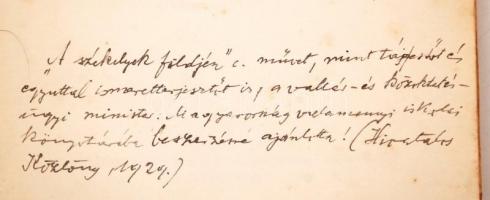 "A székelyek földjén" c. művet, mint tájfestőt és
egyuttal ismeretterjesztőt is, a vallás- és közoktatás-
ügyi minister Magyarország valamennyi iskolai
könyvtárába beszerzésre ajánlotta! (Hivatalos
Közlöny, 1929.)